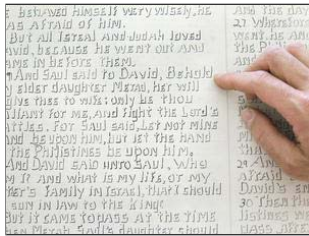 E BEHAVED HIMSELF VERY WISELY, HE
AS AFRAID OF HIM.
BUT ALL ISRAEL AND JUDAH LOVED
AVID, BECAUSE HE WENT OUT AND
AME IN BEFORE THEM.
AND SAUL SAID TO DAVID, BEHOLD
Y ELDER DAUGHTER MERAB, HER WILL
GIVE THEE TO WIFE: ONLY BE THOU
ALIANT FOR ME, AND FIGHT THE LORD'S
ATTLES. FOR SAUL SAID, LET NOT MINE
AND BE UPON HIM, BUT LET THE HAND
THE PHILISTINES BE UPON HIM.
AND DAVID SAID UNTO SAUL, WHO
M I? AND WHAT IS MY LIFE, OR MY
HER'S FAMILY IN ISRAEL, THAT I SHOULD
SUN IN LAW TO THE KING?
BUT IT CAME TO PASS AT THE TIME
HEN MERAB SAUL'S DAUGHTER SHOULD
AND THE DAY
27 WHEREFORE
WENT, HE AND
AND
29 AND
AFRAID
DAVID'S EN
30 THEN TH
LISTINES W
PASS, AFTER